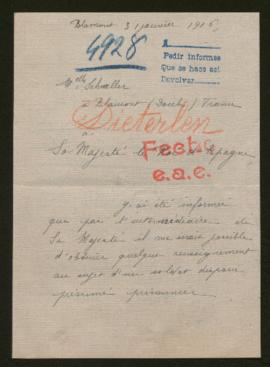 Blamont 31 janvier 1916
4928
A
Pedir informes
Que se hace así
Devolver
Melle Schaeller
à Blamont (Doubs) France
Dieterlen
à
Sa Majesté le Roi d'Espagne
Fecho
e.a.e.
J'ai été informée
que par l'intermédiaire de
Sa Majesté il me serait possible
d'obtenir quelque renseignement
au sujet d'un soldat disparu
présumé prisonnier.